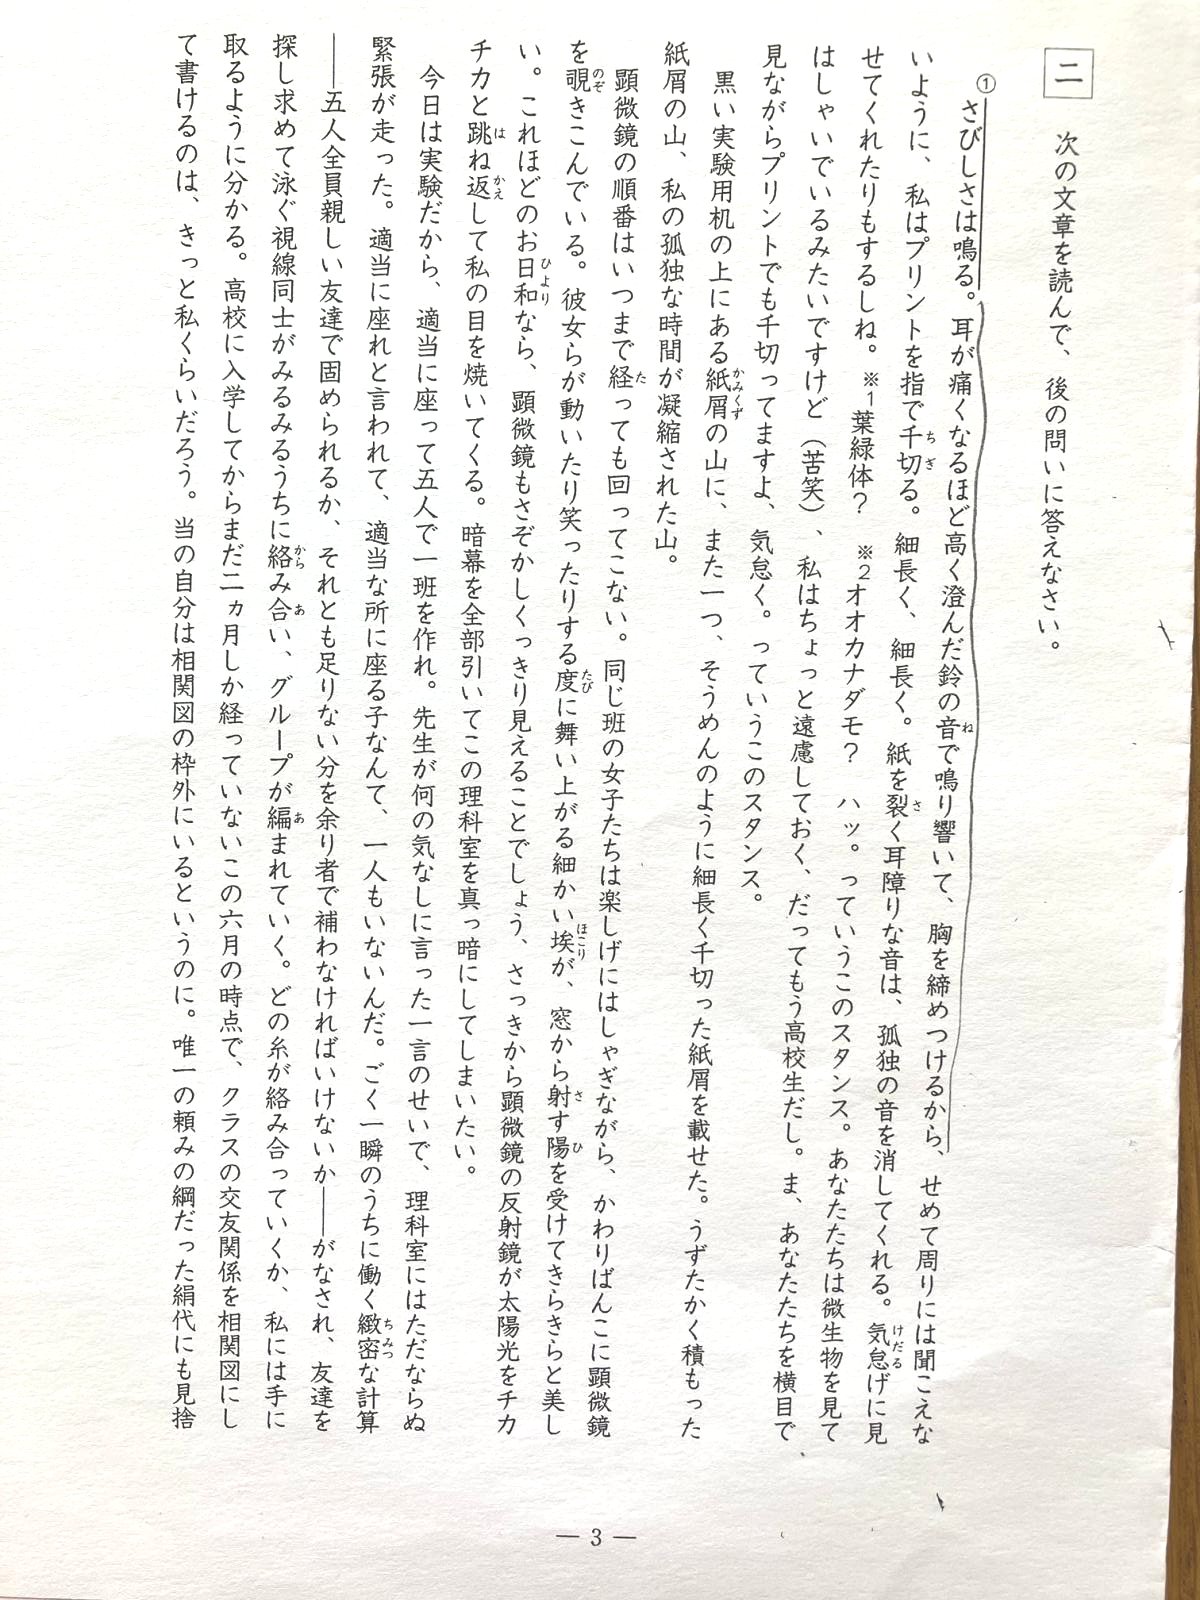 二
次の文章を読んで、後の問いに答えなさい。
①さびしさは鳴る。耳が痛くなるほど高く澄んだ鈴の音ねで鳴り響いて、胸を締めつけるから、せめて周りには聞こえな
いように、私はプリントを指で千切ちぎる。細長く、細長く。紙を裂さく耳障りな音は、孤独の音を消してくれる。気怠けだるげに見
せてくれたりもするしね。※1葉緑体？　※2オオカナダモ？　ハッ。っていうこのスタンス。あなたたちは微生物を見て
はしゃいでいるみたいですけど（苦笑）、私はちょっと遠慮しておく、だってもう高校生だし。ま、あなたたちを横目で
見ながらプリントでも千切ってますよ、気怠く。っていうこのスタンス。
黒い実験用机の上にある紙屑かみくずの山に、また一つ、そうめんのように細長く千切った紙屑を載せた。うずたかく積もった
紙屑の山、私の孤独な時間が凝縮された山。
顕微鏡の順番はいつまで経たっても回ってこない。同じ班の女子たちは楽しげにはしゃぎながら、かわりばんこに顕微鏡
を覗のぞきこんでいる。彼女らが動いたり笑ったりする度たびに舞い上がる細かい埃ほこりが、窓から射さす陽ひを受けてきらきらと美し
い。これほどのお日和ひよりなら、顕微鏡もさぞかしくっきり見えることでしょう、さっきから顕微鏡の反射鏡が太陽光をチカ
チカと跳はね返かえして私の目を焼いてくる。暗幕を全部引いてこの理科室を真っ暗にしてしまいたい。
今日は実験だから、適当に座って五人で一班を作れ。先生が何の気なしに言った一言のせいで、理科室にはただならぬ
緊張が走った。適当に座れと言われて、適当な所に座る子なんて、一人もいないんだ。ごく一瞬のうちに働く緻密ちみつな計算
――五人全員親しい友達で固められるか、それとも足りない分を余り者で補わなければいけないか――がなされ、友達を
探し求めて泳ぐ視線同士がみるみるうちに絡からみ合あい、グループが編あまれていく。どの糸が絡み合っていくか、私には手に
取るように分かる。高校に入学してからまだ二ヵ月しか経っていないこの六月の時点で、クラスの交友関係を相関図にし
て書けるのは、きっと私くらいだろう。当の自分は相関図の枠外にいるというのに。唯一の頼みの綱だった絹代にも見捨
― 3 ―